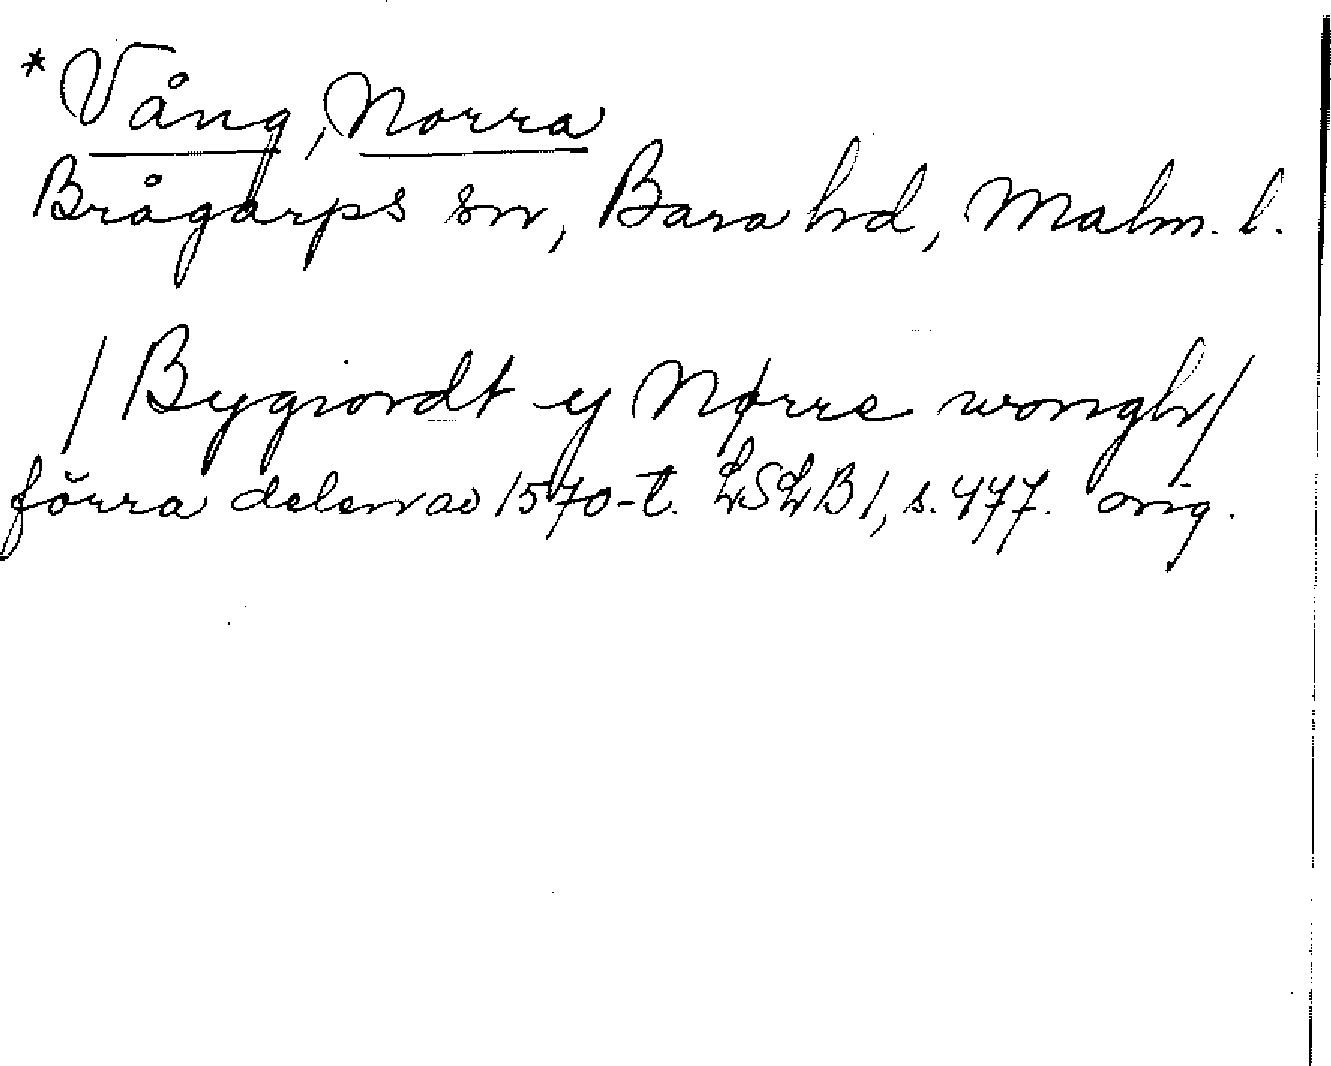 *Vång, Norra
Brågarps sn, Bara hd, Malm. l.
/ Bygiordt y Nørre wongh /
förra delen av 1570-t. LSLB 1, s. 477. orig.